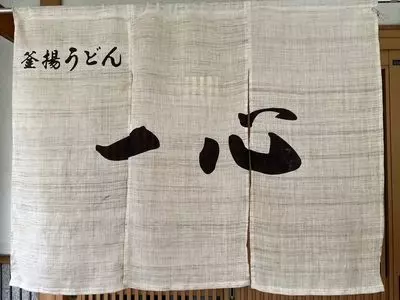 釜揚うどん
一心